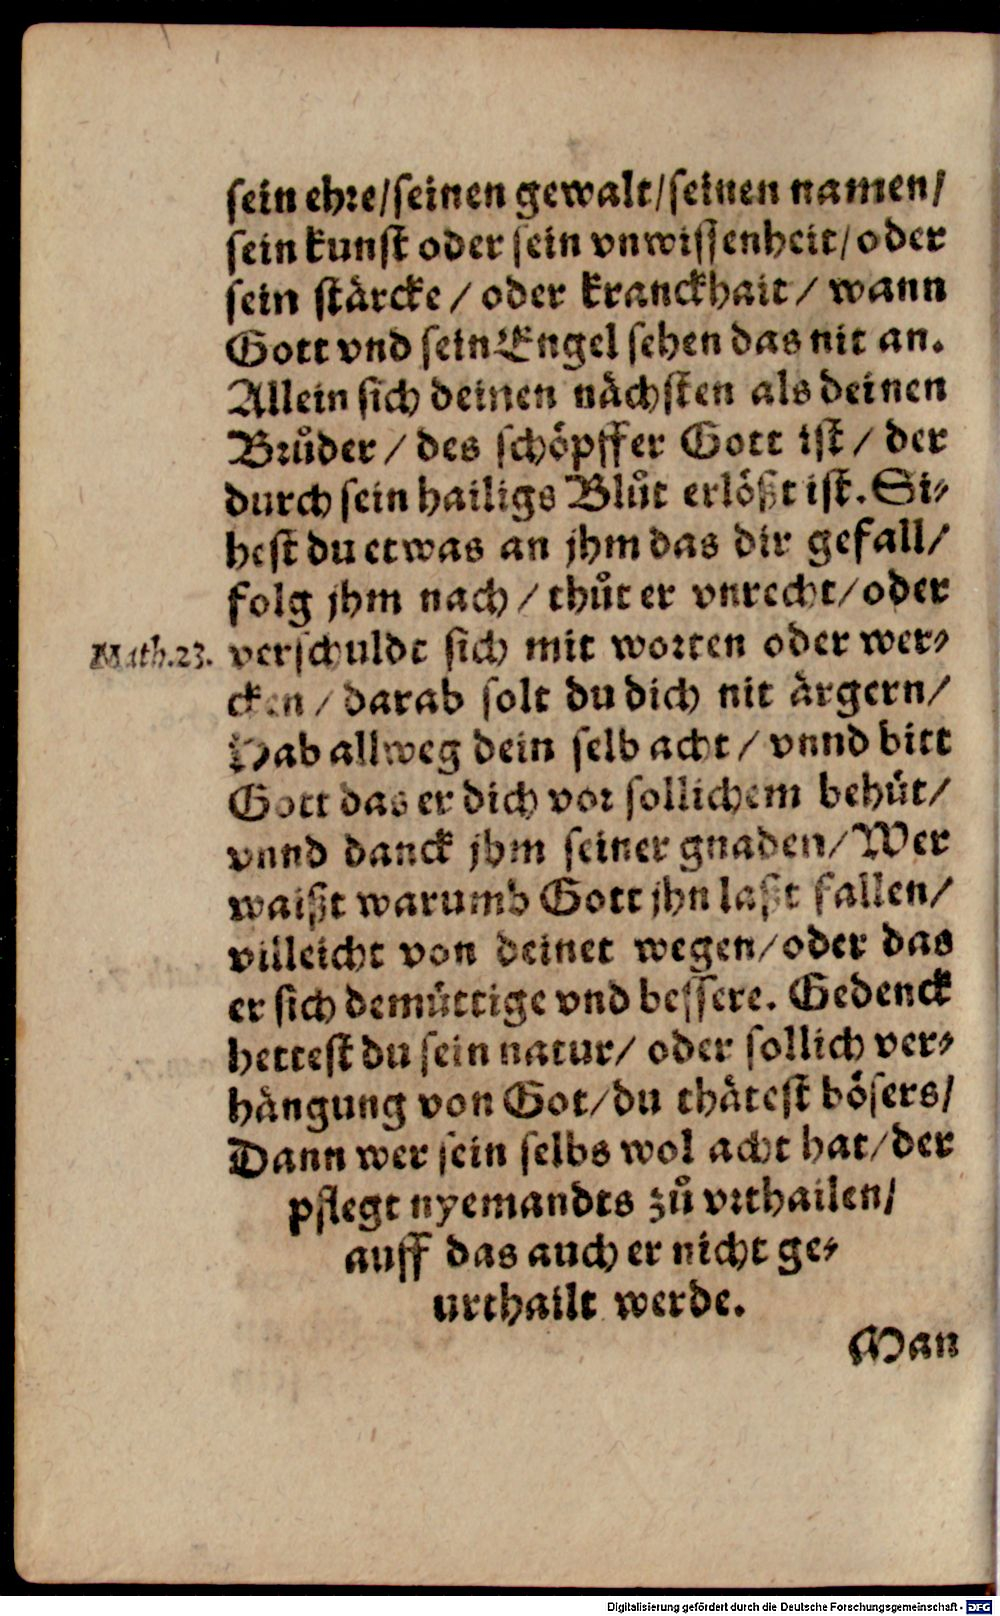 sein ehre/seinen gewalt/seinen namen/
sein kunst oder sein vnwissenheit/oder
sein stärcke / oder kranckhait / wann
Gott vnd sein Engel sehen das nit an.
Allein sich deinen nächsten als deinen
Brůder / des schöpffer Gott ist / der
durch sein hailigs Blůt erlößt ist. Si-
hest du etwas an jhm das dir gefall/
folg jhm nach / thůt er vnrecht/oder
Math.23. verschuldt sich mit worten oder wer-
cken / darab solt du dich nit ärgern/
Hab allweg dein selb acht / vnnd bitt
Gott das er dich vor sollichem behüt/
vnnd danck jhm seiner gnaden/Wer
waißt warumb Gott jhn laßt fallen/
villeicht von deinet wegen/oder das
er sich demüttige vnd bessere. Gedenck
hettest du sein natur/ oder sollich ver-
hängung von Got/du thätest bösers/
Dann wer sein selbs wol acht hat/der
pflegt nyemandts zů vrthailen/
auff das auch er nicht ge-
urthailt werde.
Man
Digitalisierung gefördert durch die Deutsche Forschungsgemeinschaft - DFG